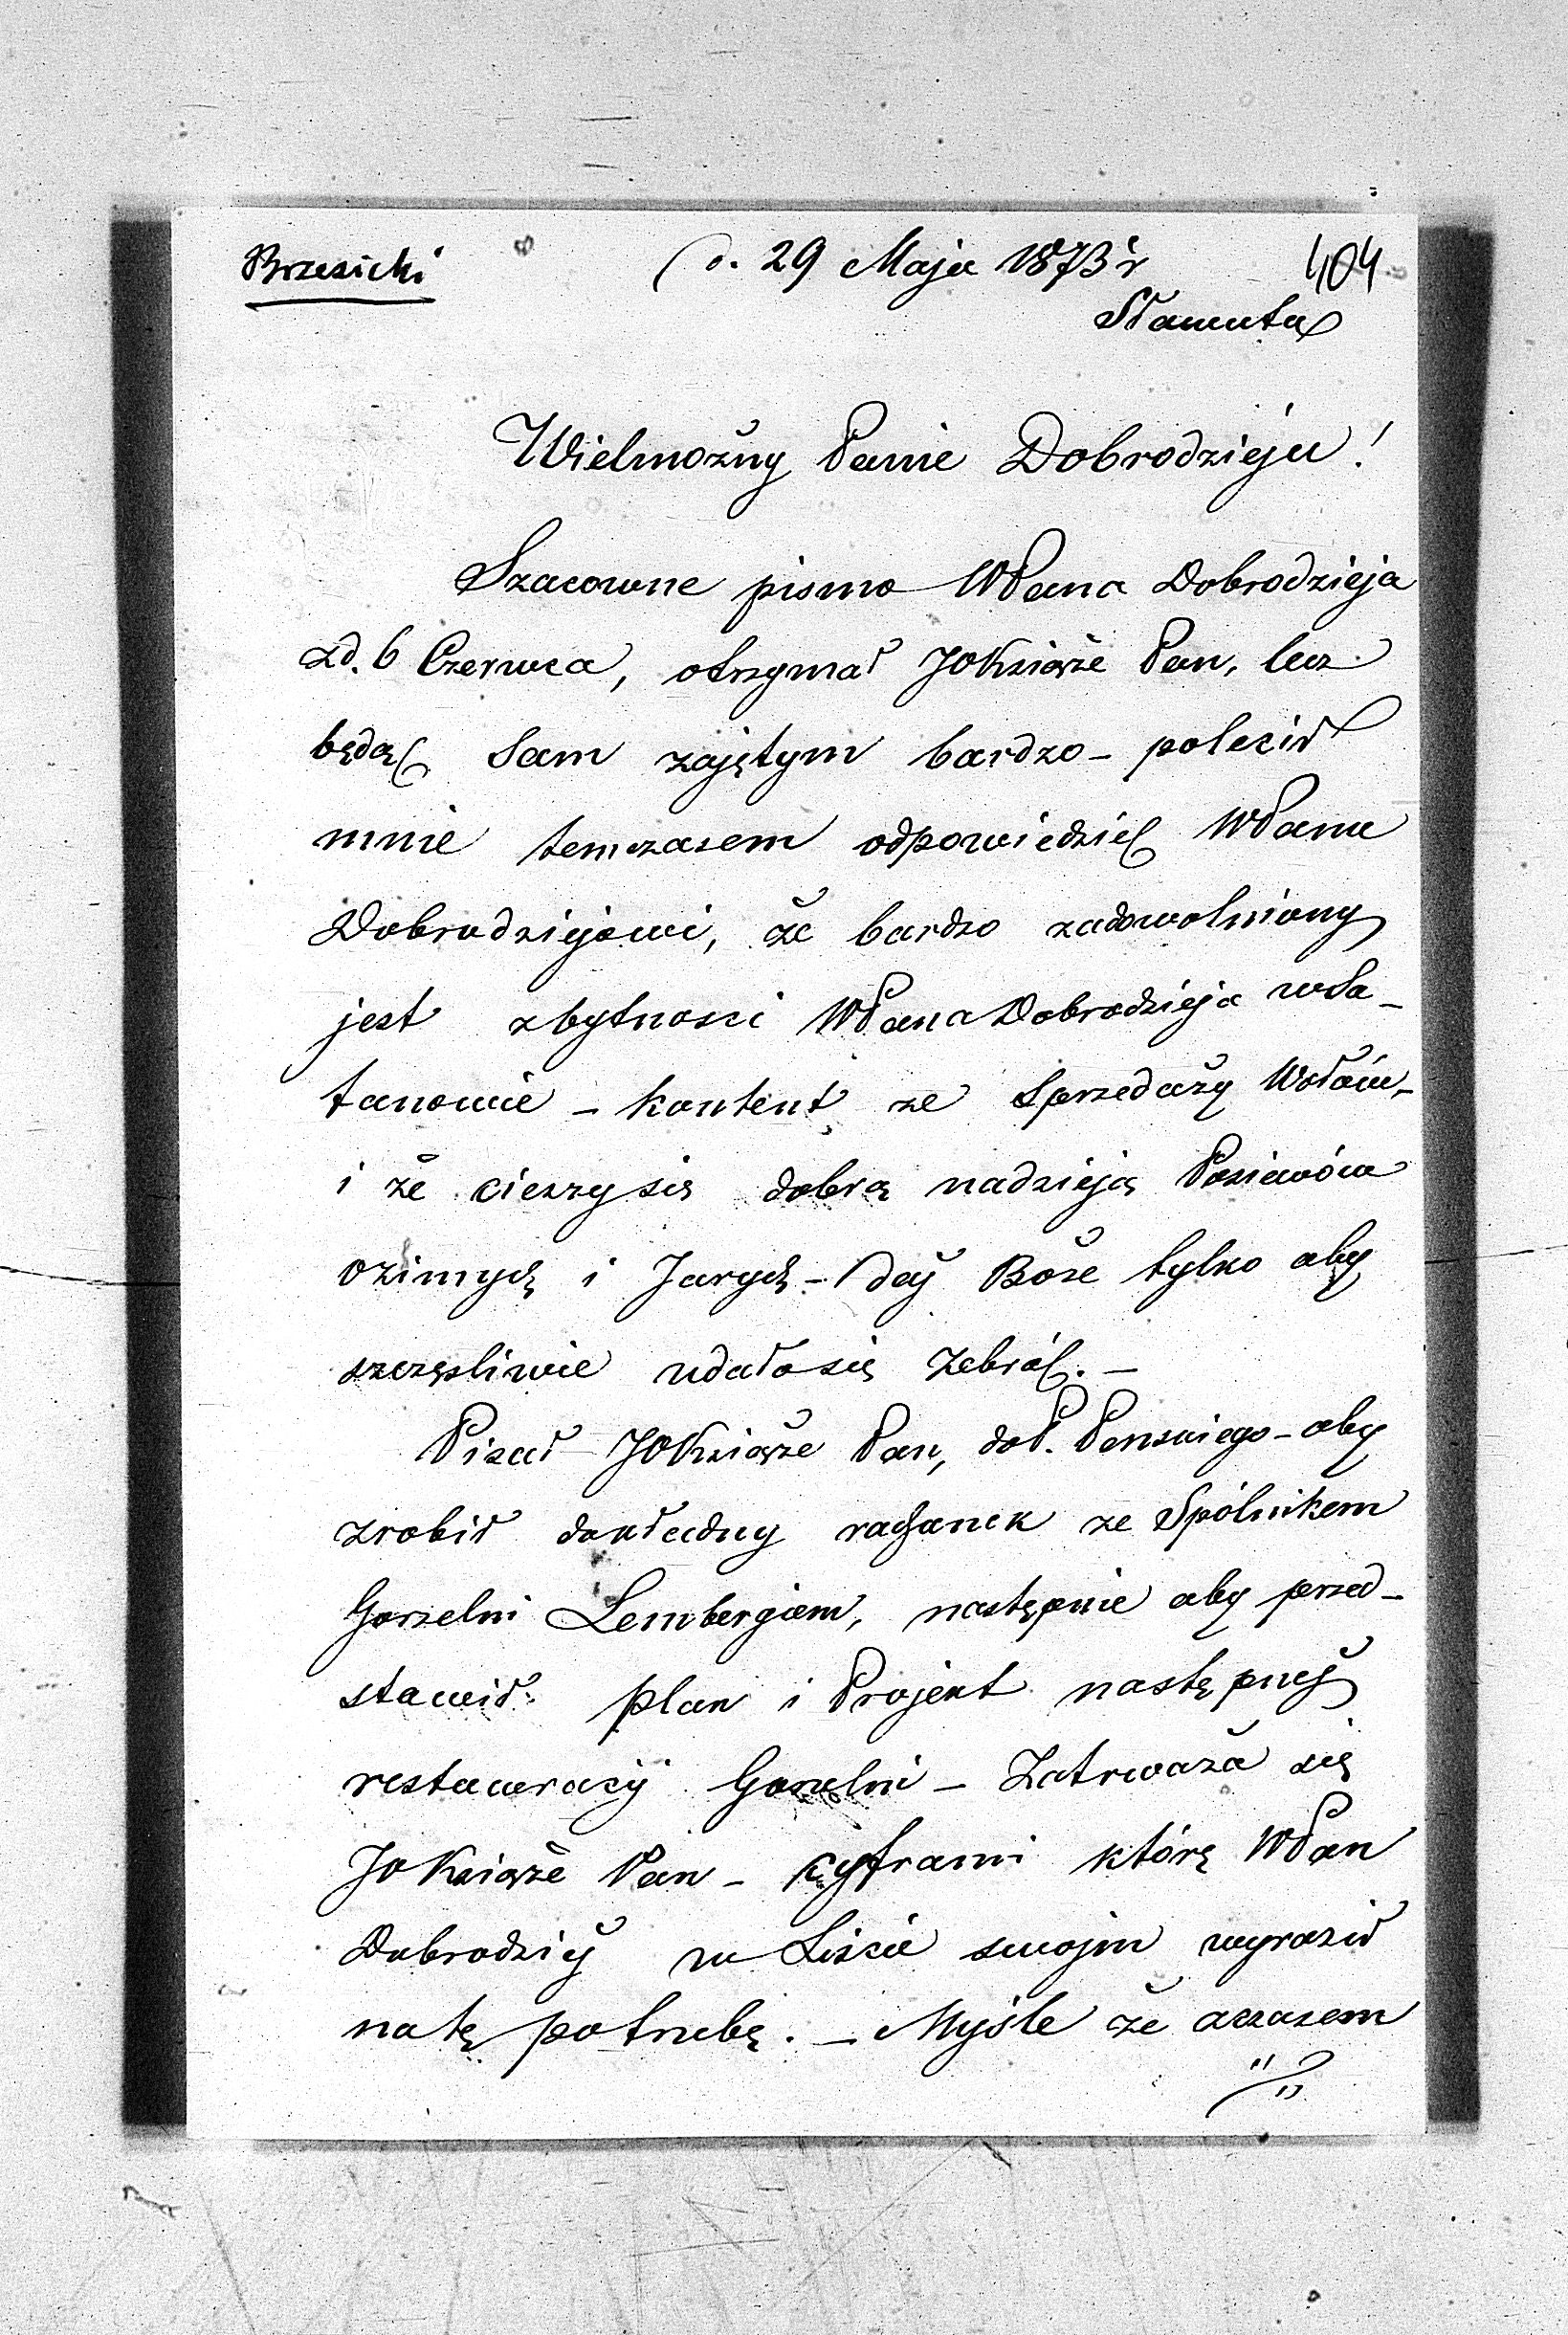 Brzesicki
d. 29 Maja 1873 r
404
Sławuta
Wielmożny Panie Dobrodzieju!
Szacowne pismo WPana Dobrodzieja
zd. 6 Czerwca, otrzymał JOKsiąże Pan, lecz
będąc sam zajętym bardzo – polecił
mnie temczasem odpowiedzieć WPanu
Dobrodziejowi, że bardzo zadowolniony
jest zbytnosci WPana Dobrodzieja wSa–
tanowie – kontent ze Sprzedaży Wołów –
i że cieszy się dobrą nadzieją Posiewów
ozimych i Jarych – daj Boże tylko aby
szczęsliwie udało się zebrać. –
Pisał JOKsiąże Pan, do P. Penskiego – aby
zrobił dokładny rachunek ze Spólnikem
Gorzelni Lembergiem, następnie aby przed–
stawił plan i Projekt następnej
restauracij Gorzelni – Zatrważa się
JOKsiąże Pan – cyframi którę WPan
Dobrodziej w Liście swojm wyraził
natę potrzebę. – Myśle że zczasem